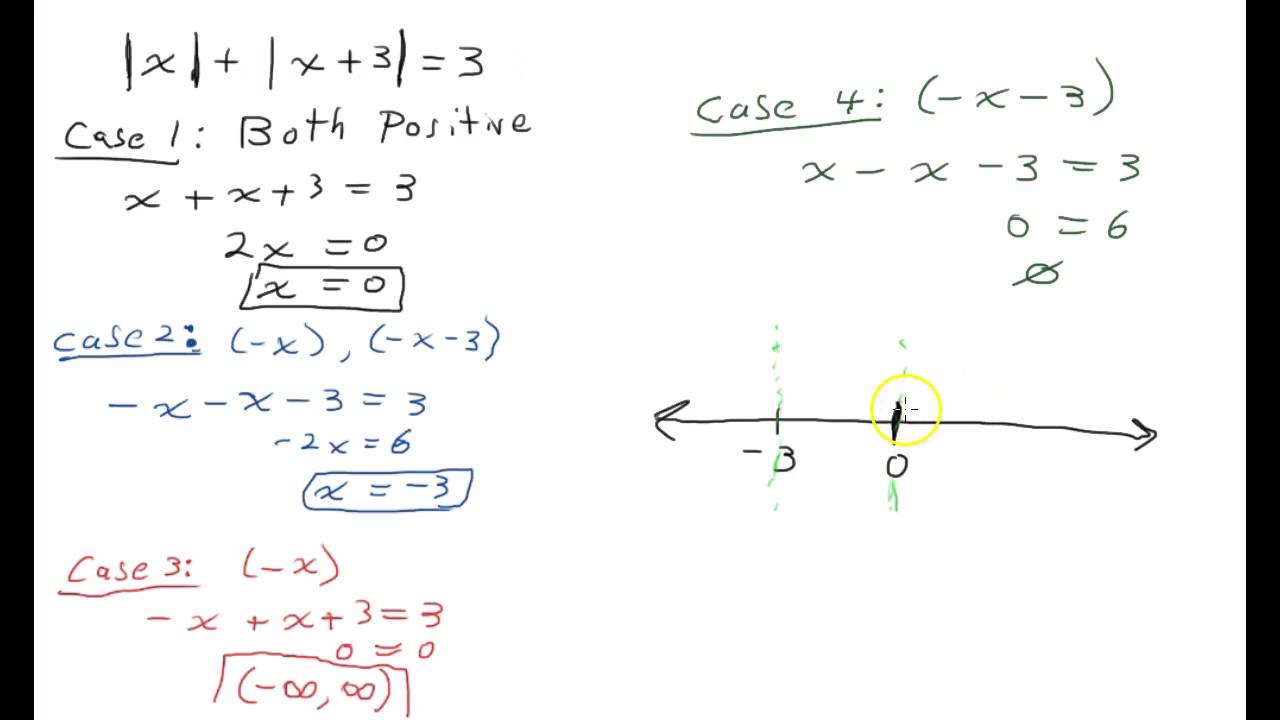 |x| + |x + 3| = 3
Case 1: Both Positive
x + x + 3 = 3
2x = 0
x = 0
Case 2: (-x), (-x-3)
-x - x - 3 = 3
-2x = 6
x = -3
Case 3: (-x)
-x + x + 3 = 3
0 = 0
(-∞, ∞)
Case 4: (-x-3)
x - x - 3 = 3
0 = 6
∅
-3 0